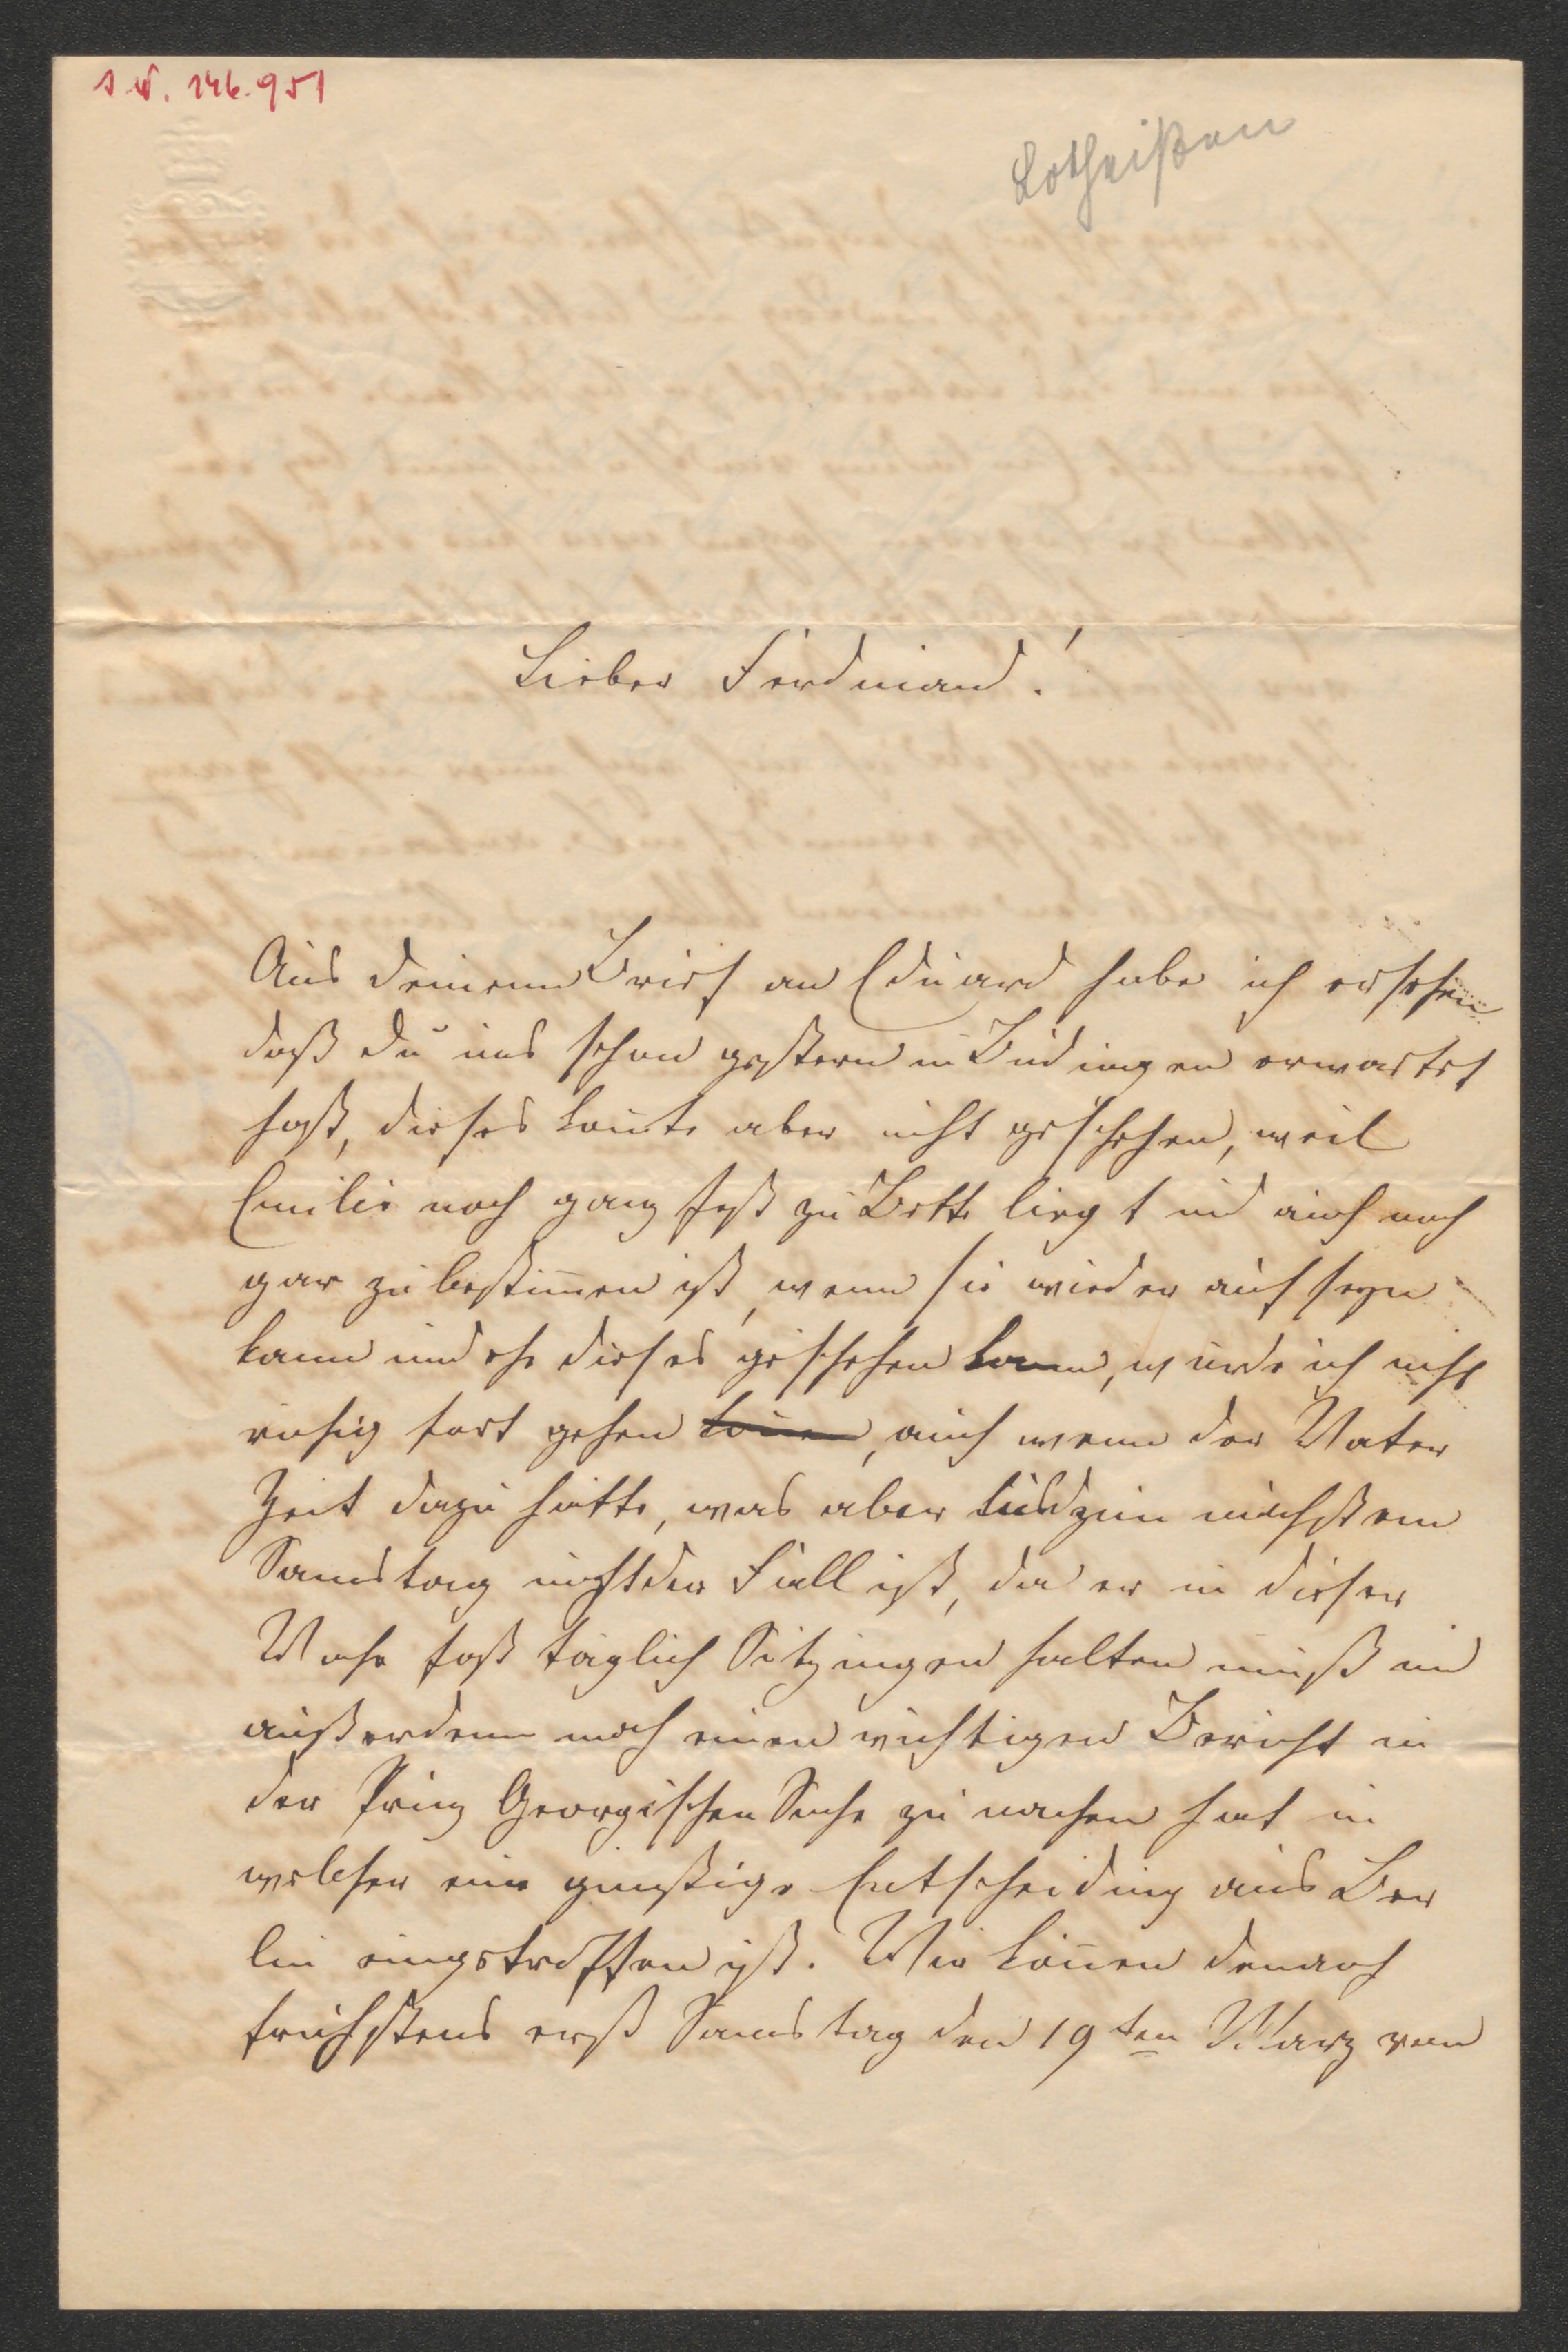 I.N. 146.951
Lotheißen
Lieber Ferdinand!
Aus deinem Brief an Eduard habe ich ersehen
daß du uns schon gestern in Büdingen erwartet
hast, dieses konnte aber nicht geschehen, weil
Emilie noch ganz fest zu Bette liegt und auch noch
gar zu bestim̄en ist, wenn sie wieder auf seyn
kann und ehe dieses geschehen kann, würde ich nicht
ruhig fort gehen, auch wenn der Vater
Zeit dazu hätte, was aber bis zum nächstem
Samstag nicht der Fall ist, da er in dieser
Woche fast täglich Sitzungen halten muß und
außerdem noch einen wichtigen Bericht in
der Prinz Georgischen Sache zu machen hat in
welcher eine günstige Entscheidung aus Ber
lin eingetroffen ist. Wir kön̄en demnach
frühstens erst Samstag den 19ten März von